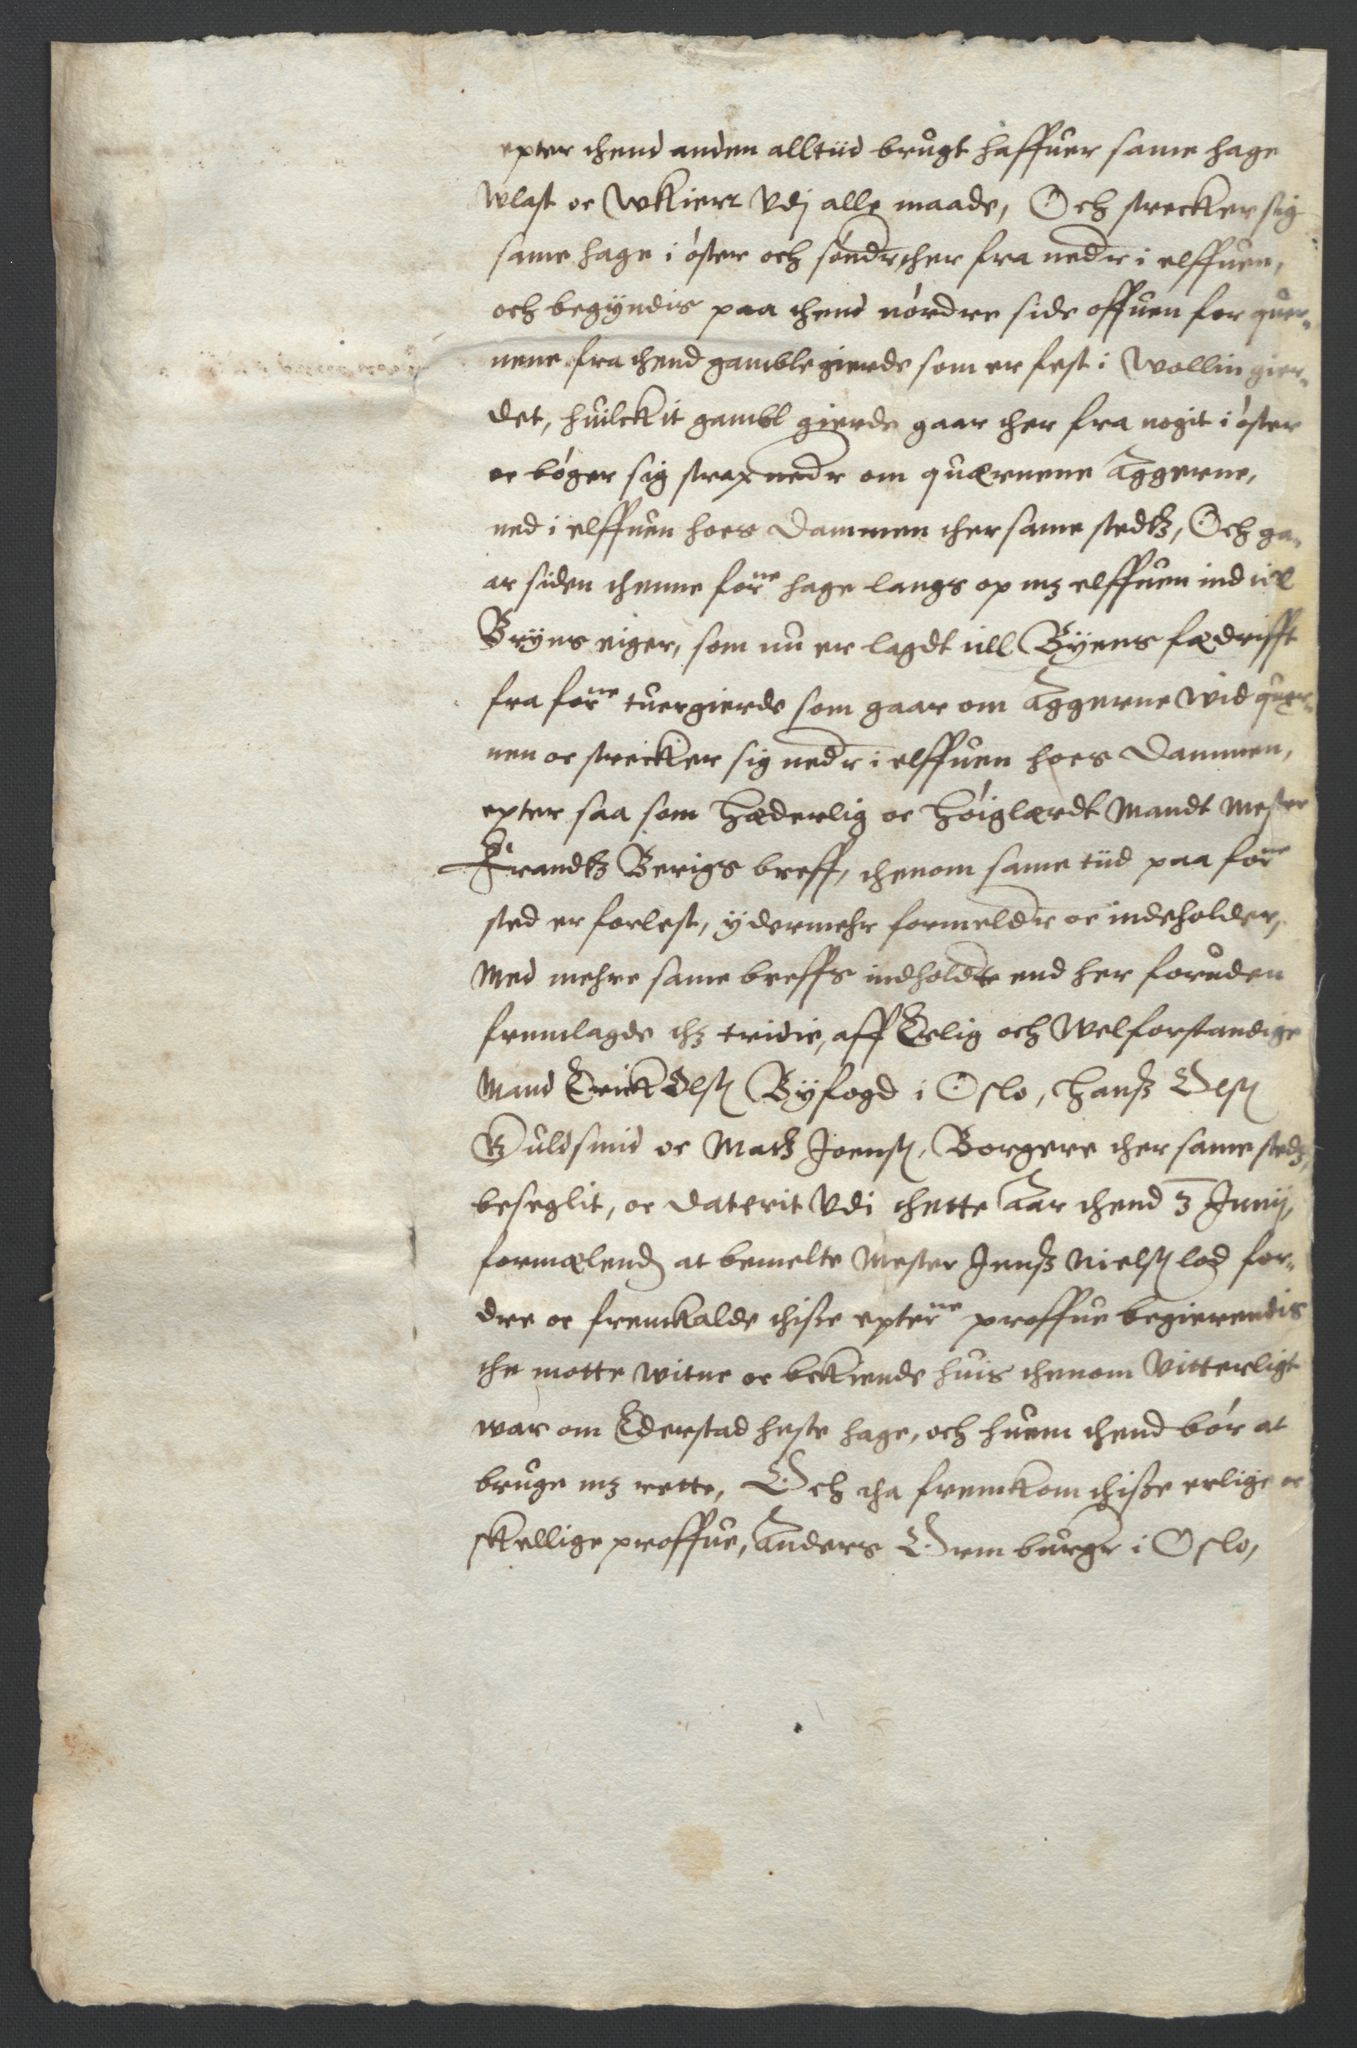 epter thend anden alltiid brugt haffuer same hage
wlast oc wkiert vdj alle maade, Och strecker sig
same hage i øster och sønder ther fra neder i elffuen,
och begyndis paa thend nordre side offuen for quer-
nene fra thend gamble gierde som er fest i Wollin gier-
det, huilckit gambl gierde gaar ther fra nogit i øster
oc bøger sig strax neder om quærnene Aggerne,
ned i elffuen hoes Dammen ther same stedtz, Och ga-
ar siden thenne forne hage langs op mz elffuen ind till
Bryns eiger, som nu er lagdt till Byens fædrifft
fra forne tuergierde som gaar om Aggerne wid quer-
nen oc strecker sig neder i elffuen hoes Dammen,
epter saa som Hæderlig oc Høiglærdt Mandt Mester
Frandtz Berigs breff, thenom same tiid paa forne
sted er forlest, ydermehr formelder oc indeholder,
Med mehre same breffs indholdt end her foruden
fremlagde thz tridie, aff Erlig och Welforstandige
Mand Erick Olsen Byfogd i Oslo, Hansz Olsen
Guldsmid oc Matz Joensen, Borgere ther same stedtz,
beseglit, oc daterit vdi thette Aar thend 3 Junij,
formælend at bemelte Mester Jensz Nielsen lod for-
dre oc fremkalde thisze epterne proffue begierendis
the motte witne oc bekiende huis thenom vitterligt
war om Ederstad heste hage, och huem thend bør at
bruge mz rette, Och tha fremkom thisze erlige oc
skellige proffue, Anders Orm burger i Oslo,